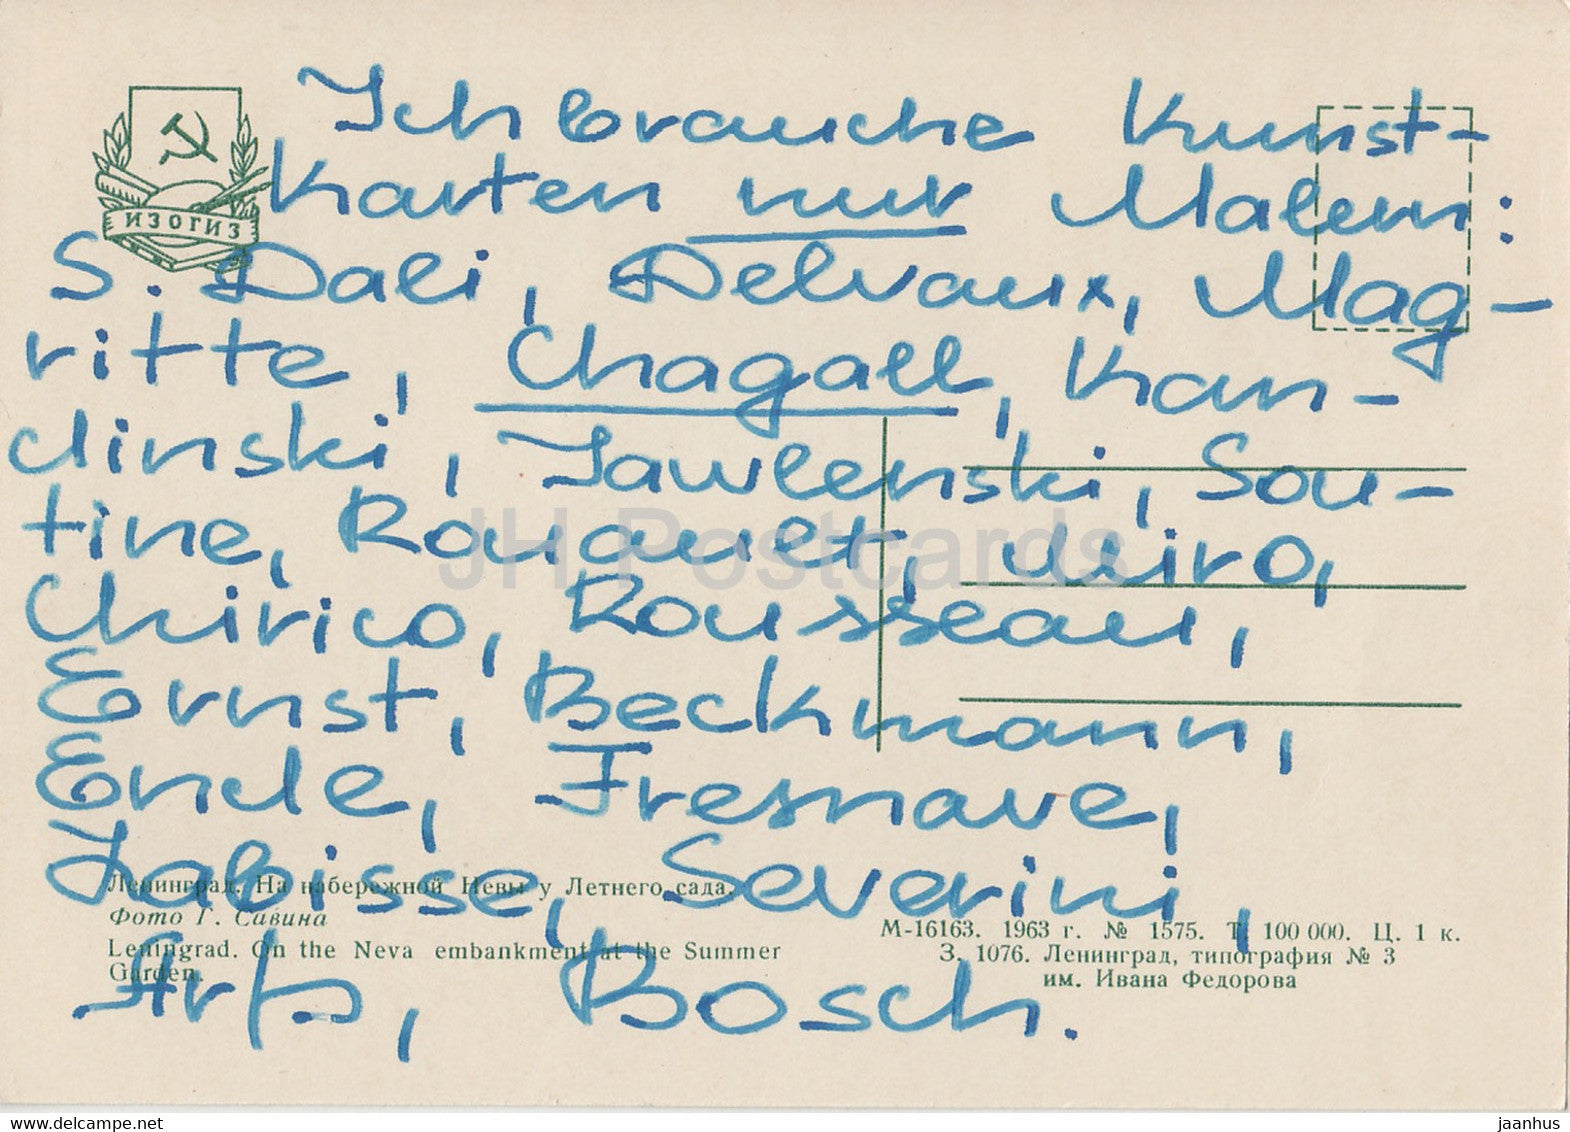 Ich brauche Kunst-
Karten nur Malern:
S. Dali, Delvaux, Mag-
ritte, Chagall, Kan-
dinski, Jawlenski, Sou-
tine, Rouauet, Miro,
Chirico, Rousseau,
Ernst, Beckmann,
Ende, Fresnave,
Jabisse, Severini,
Arp, Bosch.
ИЗОГИЗ
Ленинград. На набережной Невы у Летнего сада.
Фото Г. Савина
Leningrad. On the Neva embankment at the Summer
Garden.
М-16163. 1963 г. № 1575. Т. 100 000. Ц. 1 к.
З. 1076. Ленинград, типография № 3
им. Ивана Федорова
JH Postcards
delcampe.net
jaanhus